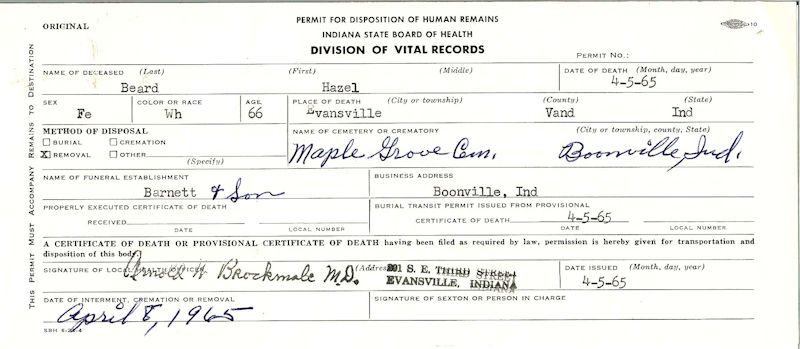 ORIGINAL
PERMIT FOR DISPOSITION OF HUMAN REMAINS
INDIANA STATE BOARD OF HEALTH
DIVISION OF VITAL RECORDS
10
PERMIT NO.:
THIS PERMIT MUST ACCOMPANY REMAINS TO DESTINATION
NAME OF DECEASED (Last) (First) (Middle) DATE OF DEATH (Month, day, year)
Beard Hazel 4-5-65
SEX COLOR OR RACE AGE PLACE OF DEATH (City or township) (County) (State)
Fe Wh 66 Evansville Vand Ind
METHOD OF DISPOSAL NAME OF CEMETERY OR CREMATORY (City or township, county, State)
BURIAL CREMATION
X REMOVAL OTHER
(Specify)
Maple Grove Cem. Boonville, Ind.
NAME OF FUNERAL ESTABLISHMENT BUSINESS ADDRESS
Barnett & Son Boonville, Ind
PROPERLY EXECUTED CERTIFICATE OF DEATH BURIAL TRANSIT PERMIT ISSUED FROM PROVISIONAL
RECEIVED CERTIFICATE OF DEATH 4-5-65
DATE LOCAL NUMBER DATE LOCAL NUMBER
A CERTIFICATE OF DEATH OR PROVISIONAL CERTIFICATE OF DEATH having been filed as required by law, permission is hereby given for transportation and
disposition of this body.
SIGNATURE OF LOCAL HEALTH OFFICER (Address) DATE ISSUED (Month, day, year)
Arnold W Brockmole M.D. S. E. THIRD STREET
EVANSVILLE, INDIANA 4-5-65
DATE OF INTERMENT, CREMATION OR REMOVAL SIGNATURE OF SEXTON OR PERSON IN CHARGE
April 8, 1965
SBH